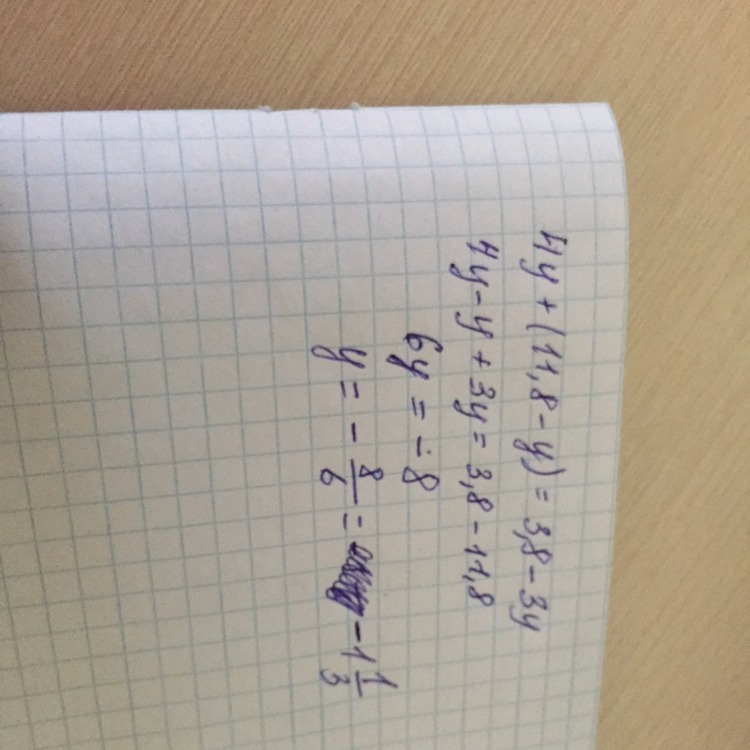 4y + (11,8 - y) = 3,8 - 3y
4y - y + 3y = 3,8 - 11,8
6y = -8
y = - 8/6 = - 1 1/3